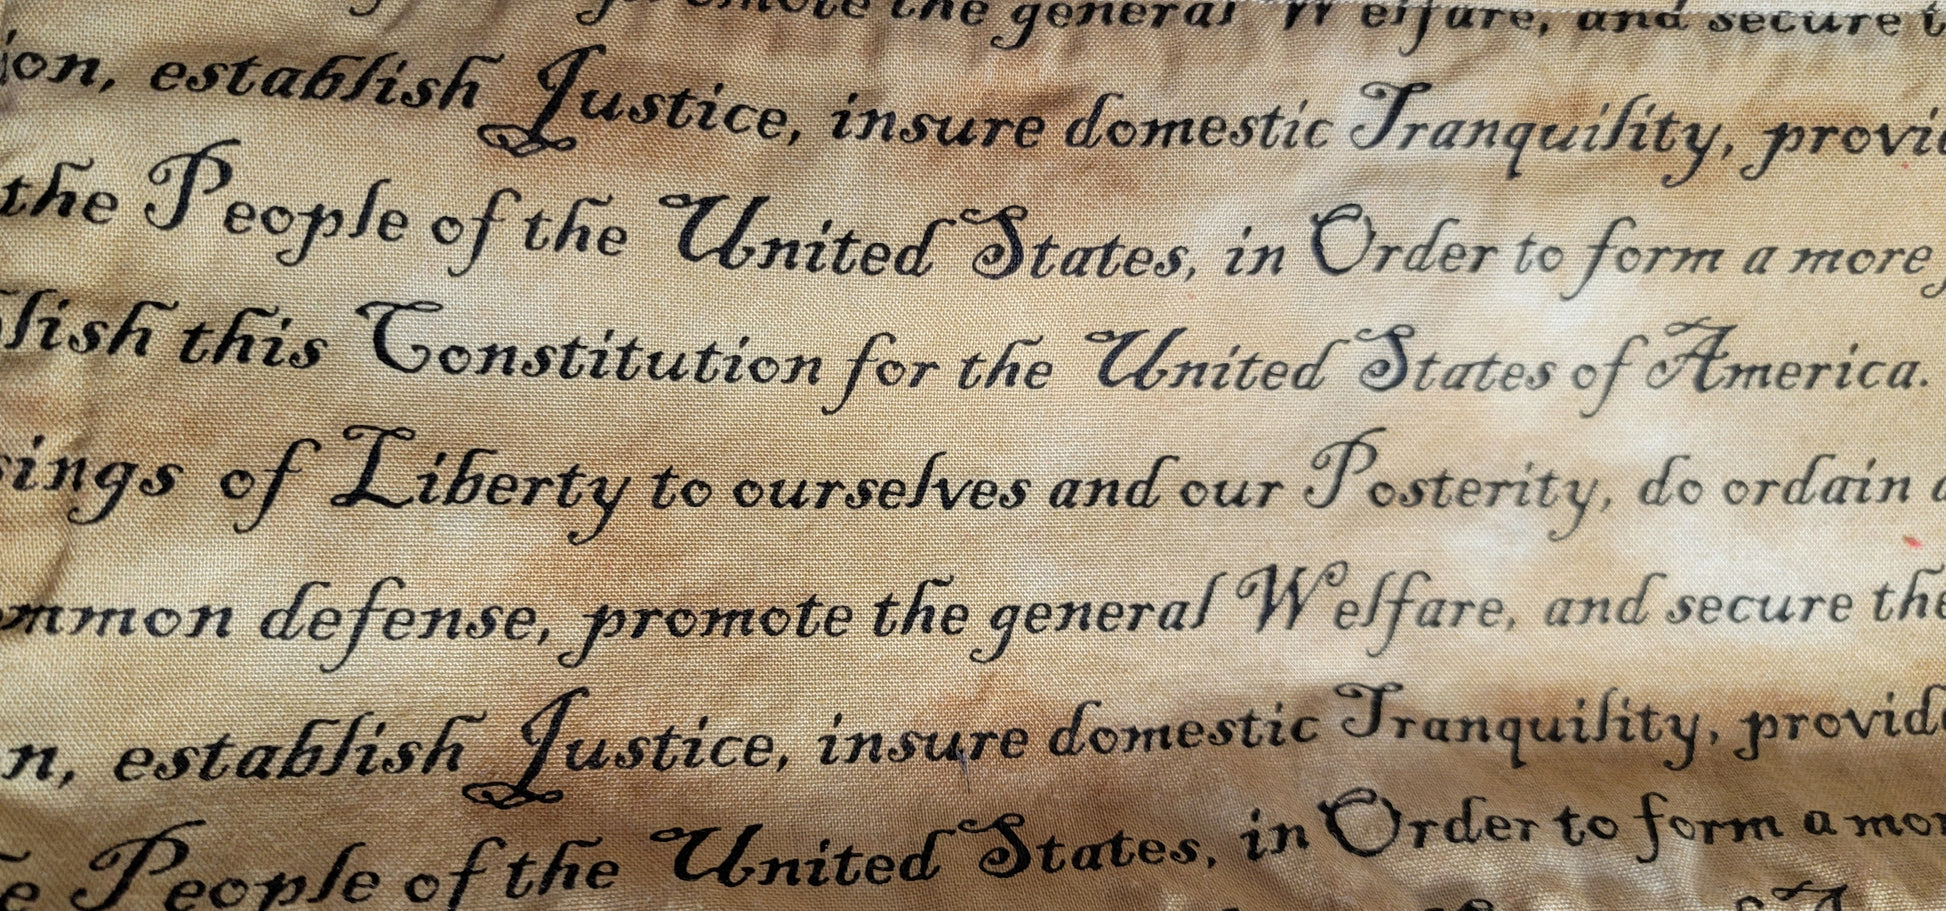 the general Welfare, and secure
ion, establish Justice, insure domestic Tranquility, provi
the People of the United States, in Order to form a more
lish this Constitution for the United States of America.
ings of Liberty to ourselves and our Posterity, do ordain
mmon defense, promote the general Welfare, and secure the
n, establish Justice, insure domestic Tranquility, provid
e People of the United States, in Order to form a mor